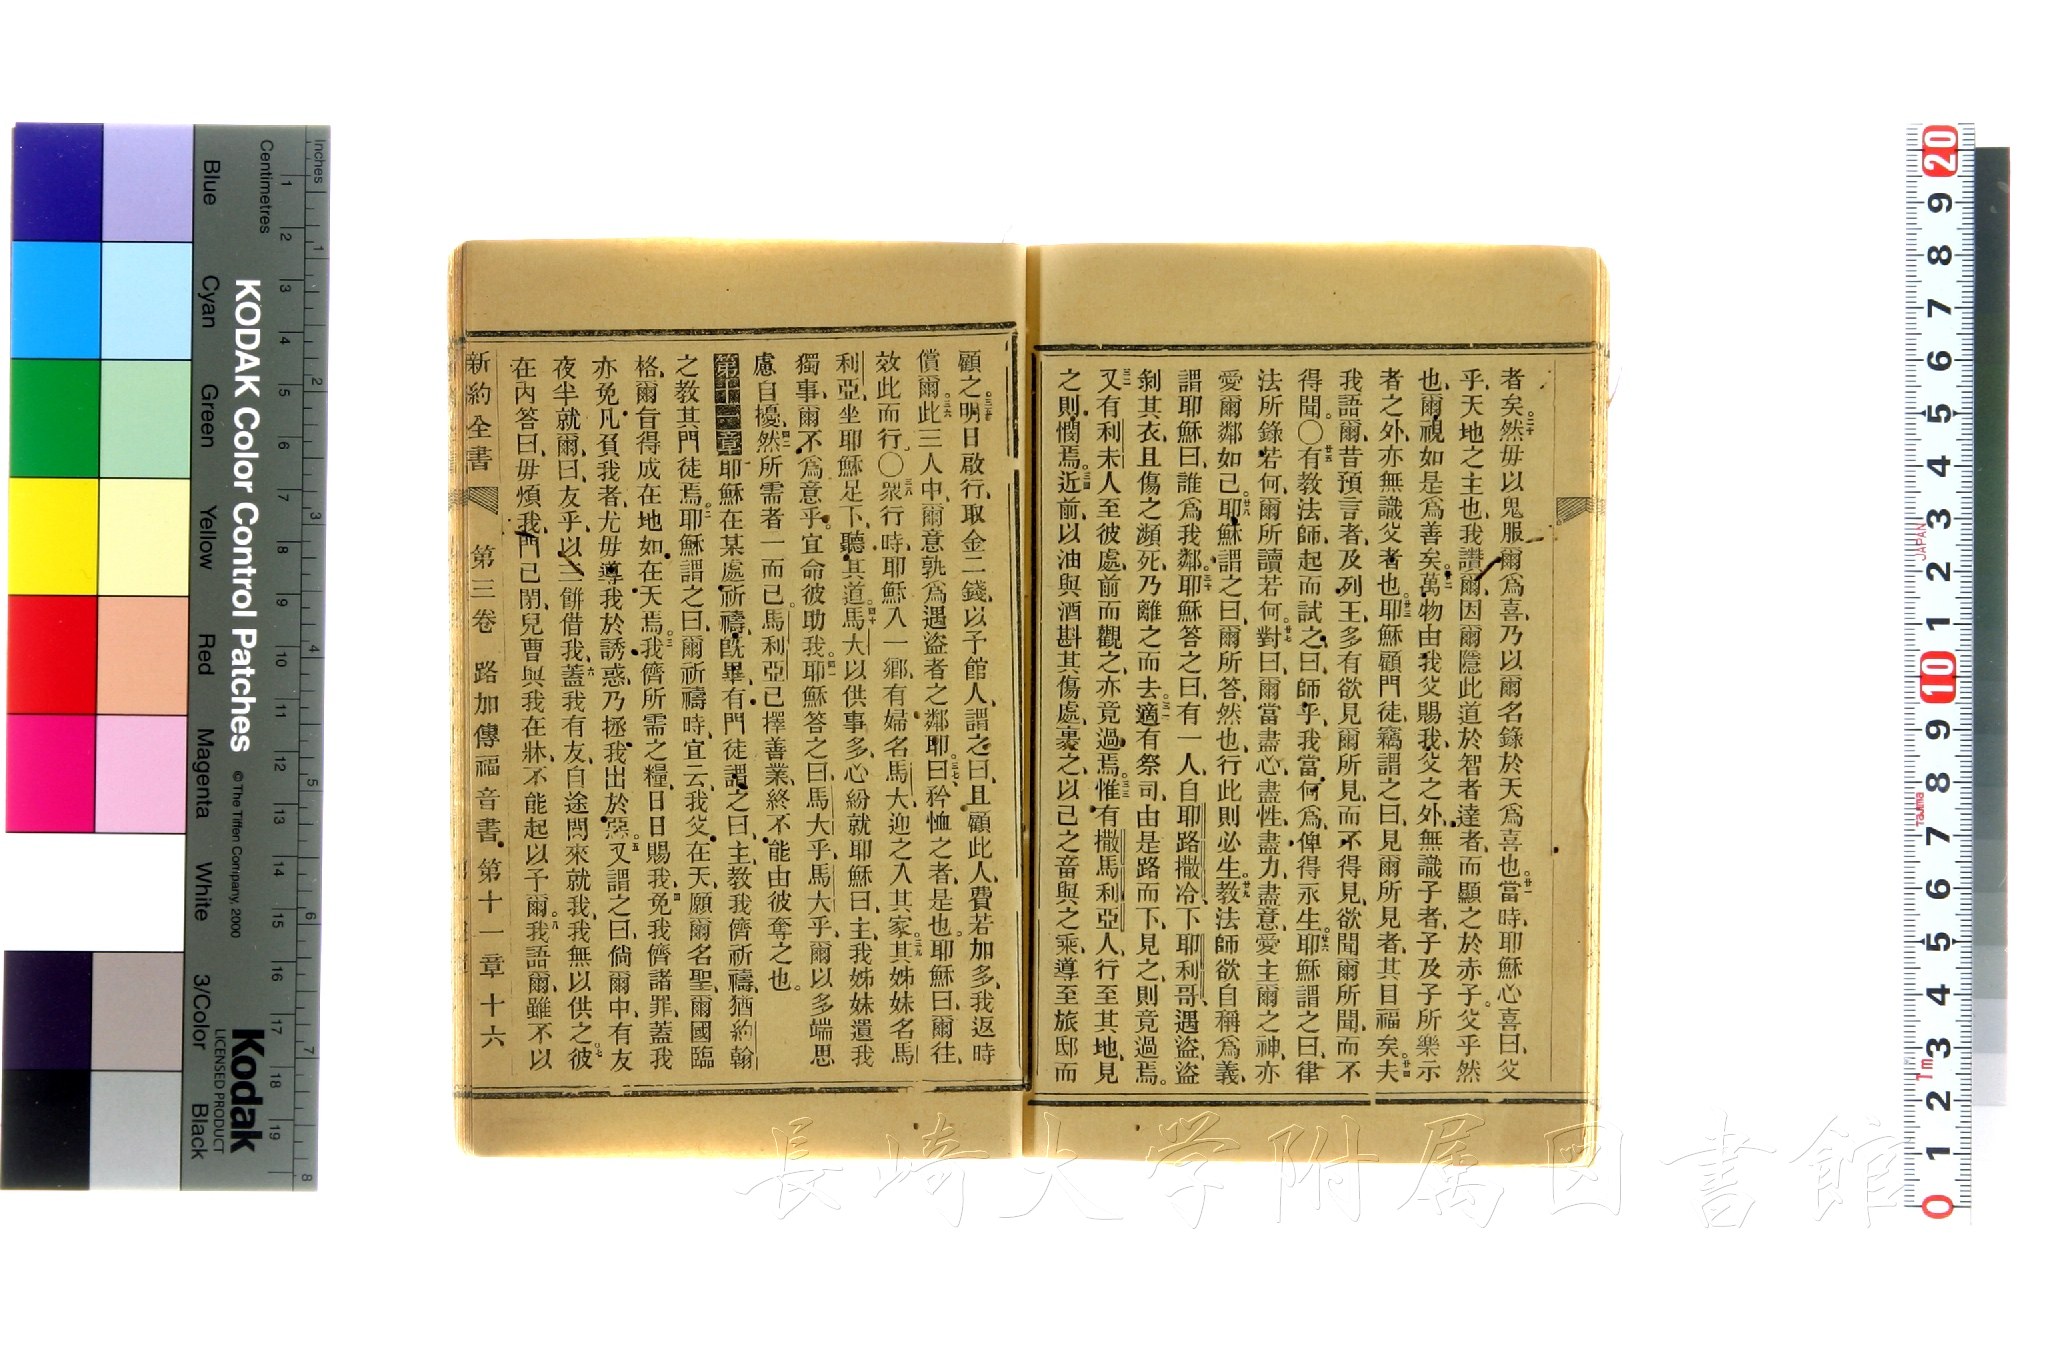 者矣、然毋以鬼服爾爲喜、乃以爾名錄於天爲喜也、當時、耶穌心喜曰、父
乎、天地之主也、我讚爾、因爾隱此道於智者達者、而顯之於赤子。父乎、然
也、爾視如是爲善矣。萬物由我父賜我、父之外、無識子者、子及子所樂示
者之外、亦無識父者也。耶穌顧門徒、竊謂之曰、見爾所見者、其目福矣。夫
我語爾、昔預言者及列王多有欲見爾所見、而不得見、欲聞爾所聞、而不
得聞。○有教法師、起而試之、曰、師乎、我當何爲、俾得永生。耶穌謂之曰、律
法所錄若何、爾所讀若何。對曰、爾當盡心盡性盡力盡意、愛主爾之神、亦
愛爾鄰如己。耶穌謂之曰、爾所答然也、行此則必生。教法師欲自稱爲義、
謂耶穌曰、誰爲我鄰。耶穌答之曰、有一人自耶路撒冷下耶利哥、遇盜、盜
剝其衣、且傷之瀕死、乃離之而去。適有祭司、由是路而下、見之、則竟過焉。
又有利未人至彼處、前而觀之、亦竟過焉。惟有撒馬利亞人、行至其地、見
之、則憫焉。近前、以油與酒斟其傷處、裹之、以己之畜與之乘、導至旅邸而
顧之。明日啟行、取金二錢、以予館人、謂之曰、且顧此人、費若加多、我返時
償爾。此三人中、爾意孰爲遇盜者之鄰耶。曰、矜恤之者是也。耶穌曰、爾往、
效此而行。○眾行時、耶穌入一鄉、有婦名馬大、迎之入其家。其姊妹名馬
利亞、坐耶穌足下、聽其道。馬大以供事多、心紛、就耶穌曰、主、我姊妹遺我
獨事、爾不爲意乎。宜命彼助我。耶穌答之曰、馬大乎、馬大乎、爾以多端思
慮自擾、然所需者一而已。馬利亞已擇善業、終不能由彼奪之也。
第十一章 耶穌在某處祈禱旣畢、有門徒謂之曰、主、教我儕祈禱、猶約翰
之教其門徒焉。耶穌謂之曰、爾祈禱時、宜云、我父在天、願爾名聖、爾國臨
格、爾旨得成在地如在天焉。我儕所需之糧、日日賜我、免我儕諸罪、蓋我
亦免凡負我者、尤毋導我於誘惑、乃拯我出於惡。又謂之曰、倘爾中有友
夜半就爾、曰、友乎、以三餅借我、蓋我有友、自途間來就我、我無以供之。彼
在內答曰、毋煩我、門已閉、兒曹與我在牀、不能起以予爾。我語爾、雖不以
新約全書 第三卷 路加傳福音書 第十一章 十六
長崎大学附属図書館
KODAK Color Control Patches
© The Tiffen Company, 2000
Kodak
LICENSED PRODUCT
Inches
Centimetres
Blue Cyan Green Yellow Red Magenta White 3/Color Black
1 2 3 4 5 6 7 8 9 10 11 12 13 14 15 16 17 18 19
1 2 3 4 5 6 7 8
20 9 8 7 6 5 4 3 2 1 10 9 8 7 6 5 4 3 2 1 0
JAPAN
1m